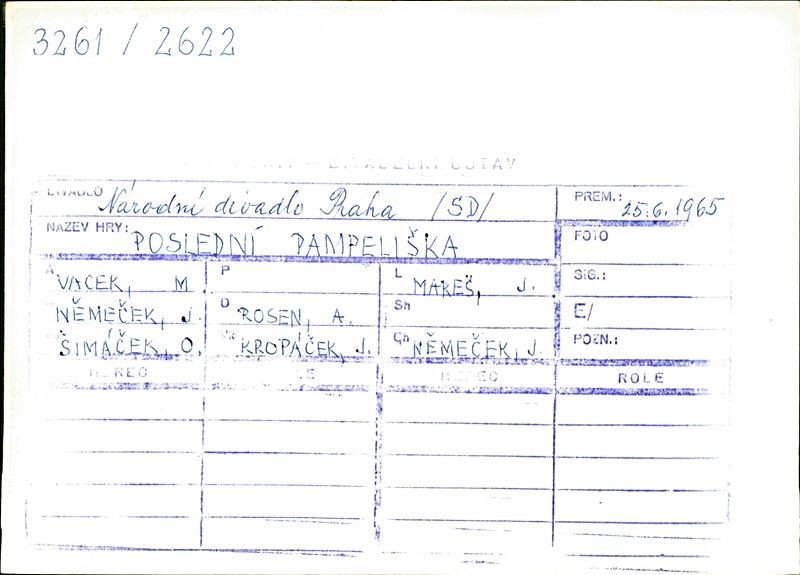 3261 / 2622
– DIVADELNÍ ÚSTAV
DIVADLO Národní divadlo Praha /SD/ PREM.: 25.6.1965
NÁZEV HRY: POSLEDNÍ PAMPELIŠKA FOTO
A VACEK, M P L MAREŠ, J. SIG.:
NĚMEČEK, J. D ROSEN, A. Sh E/
ŠIMÁČEK, O. KROPÁČEK, J. Ch NĚMEČEK, J. POZN.:
HEREC HEREC ROLE